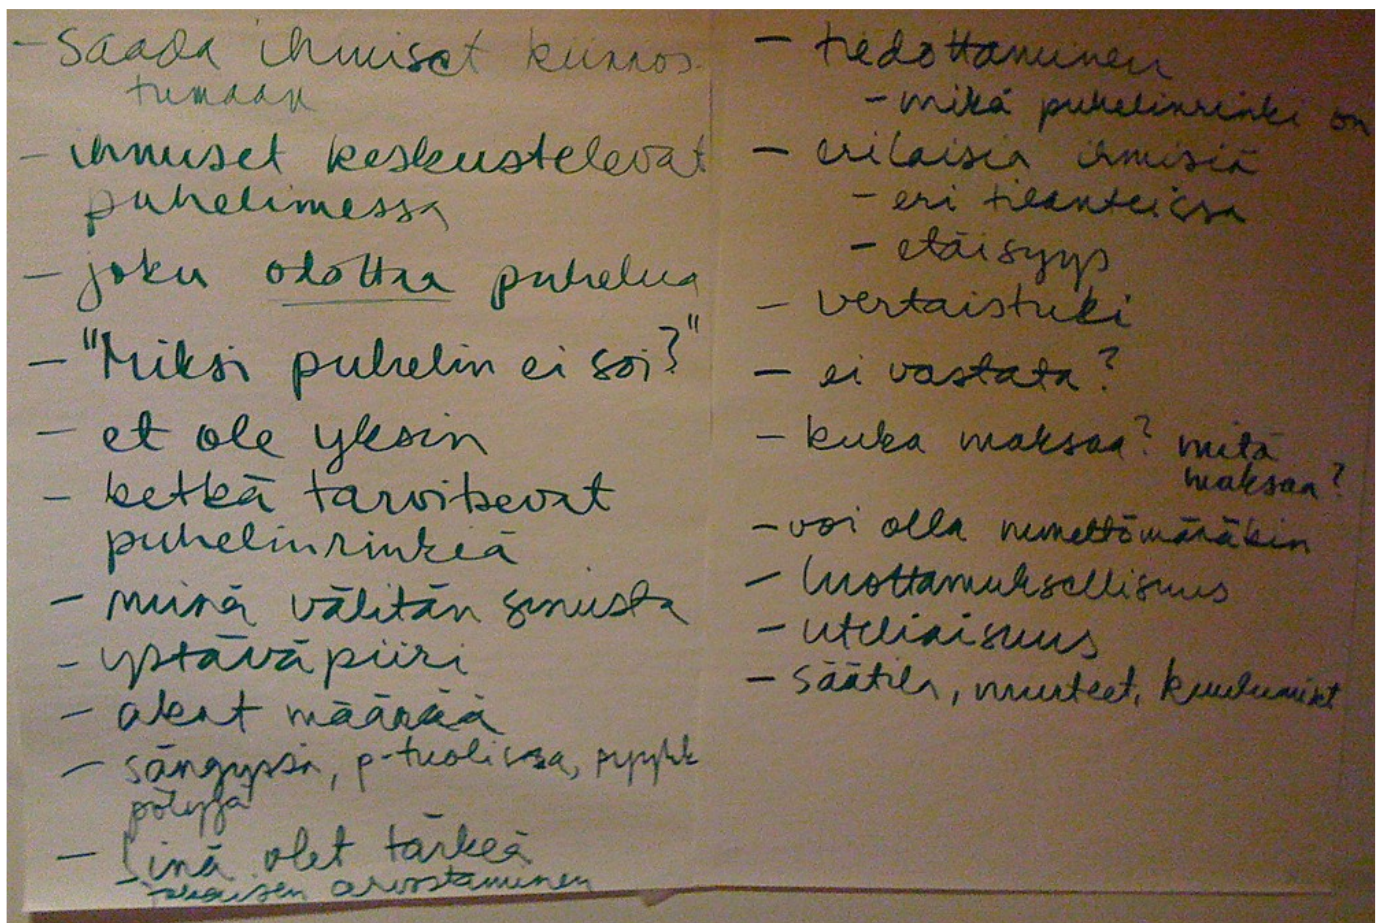 - Saada ihmiset kiinnos-
tumaan
- ihmiset keskustelevat
puhelimessa
- joku odottaa puhelua
- "Miksi puhelin ei soi?"
- et ole yksin
- ketkä tarvitsevat
puhelinrinkiä
- minä välitän sinusta
- ystäväpiiri
- akat määrää
- sängyssä, p-tuolissa, pyykk
pölyjä
- Sinä olet tärkeä
- arvostaminen
- tiedottaminen
- mikä puhelinrinki on
- erilaisia ihmisiä
- eri tilanteissa
- etäisyys
- vertaistuki
- ei vastata?
- kuka maksaa? mitä
maksaa?
- voi olla nimettömänäkin
- luottamuksellisuus
- uteliaisuus
- säätila, uutiset, kuulumiset